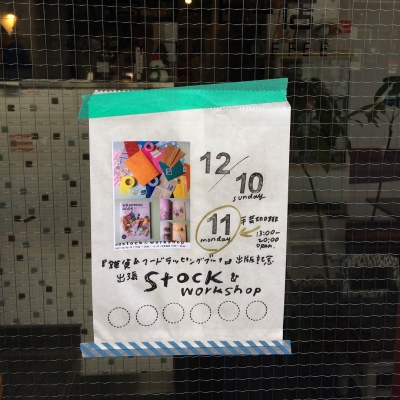 12/10
sunday
11
monday
13:00~
20:00
open
『雑貨&フードラッピングブック』出版記念
出張 Stock &
workshop
WRAPPING
BOOK